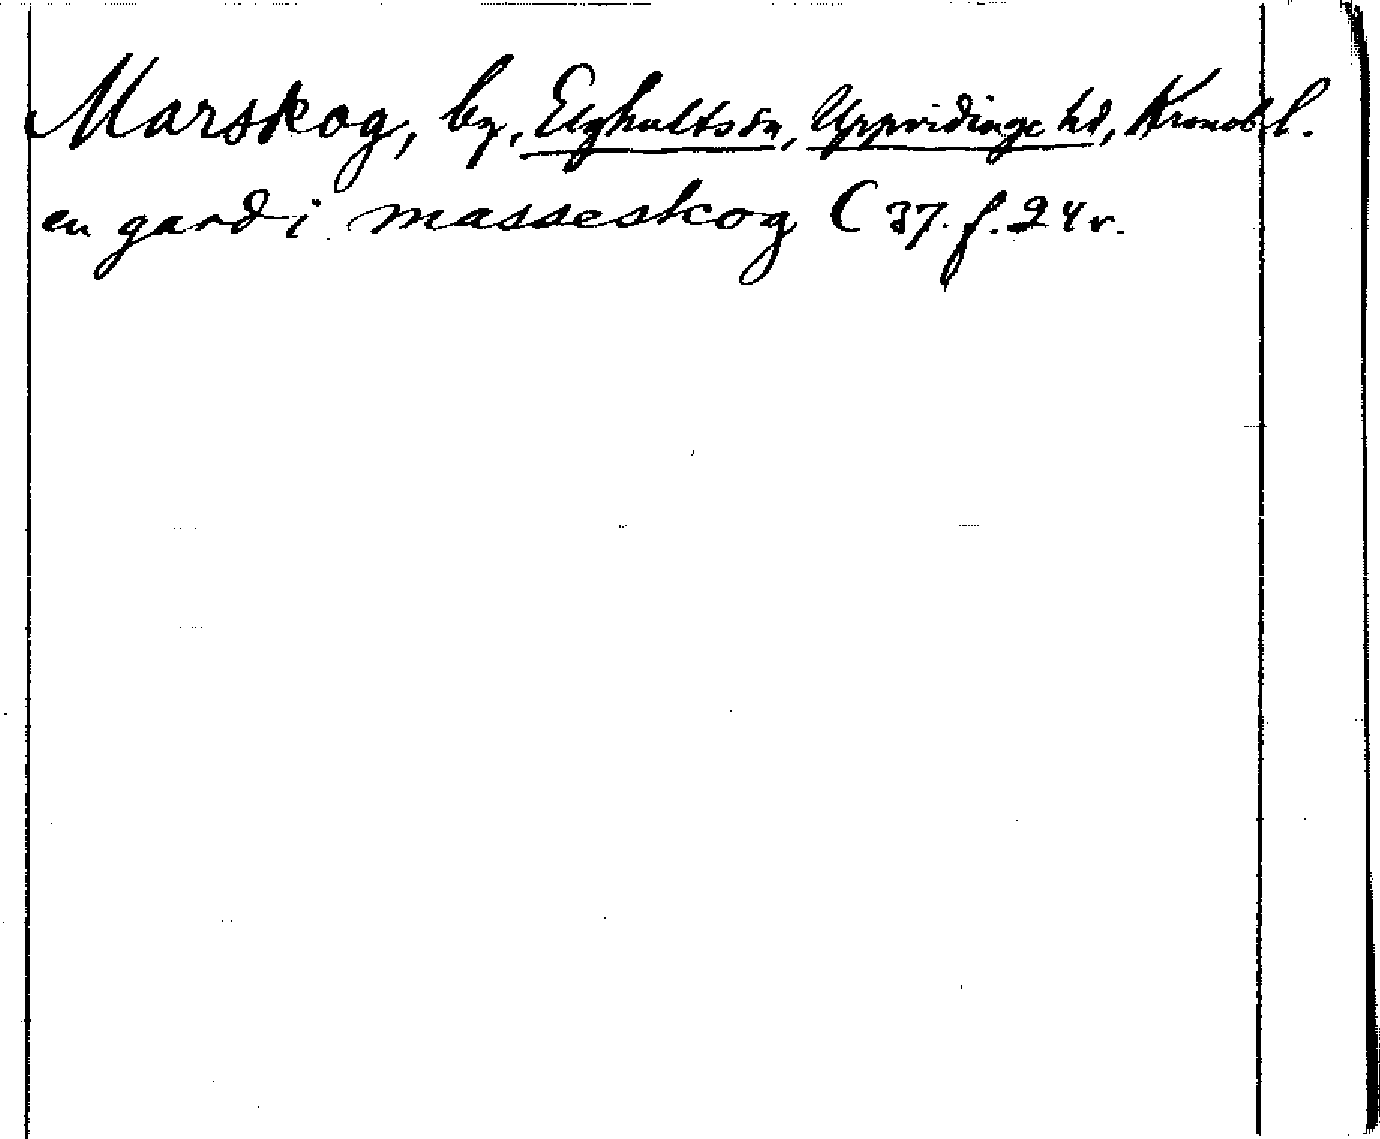 Marskog, by, Elghults sn, Uppvidinge hd, Kronob. l.
en gard i masseskog C 37. f. 24 r.